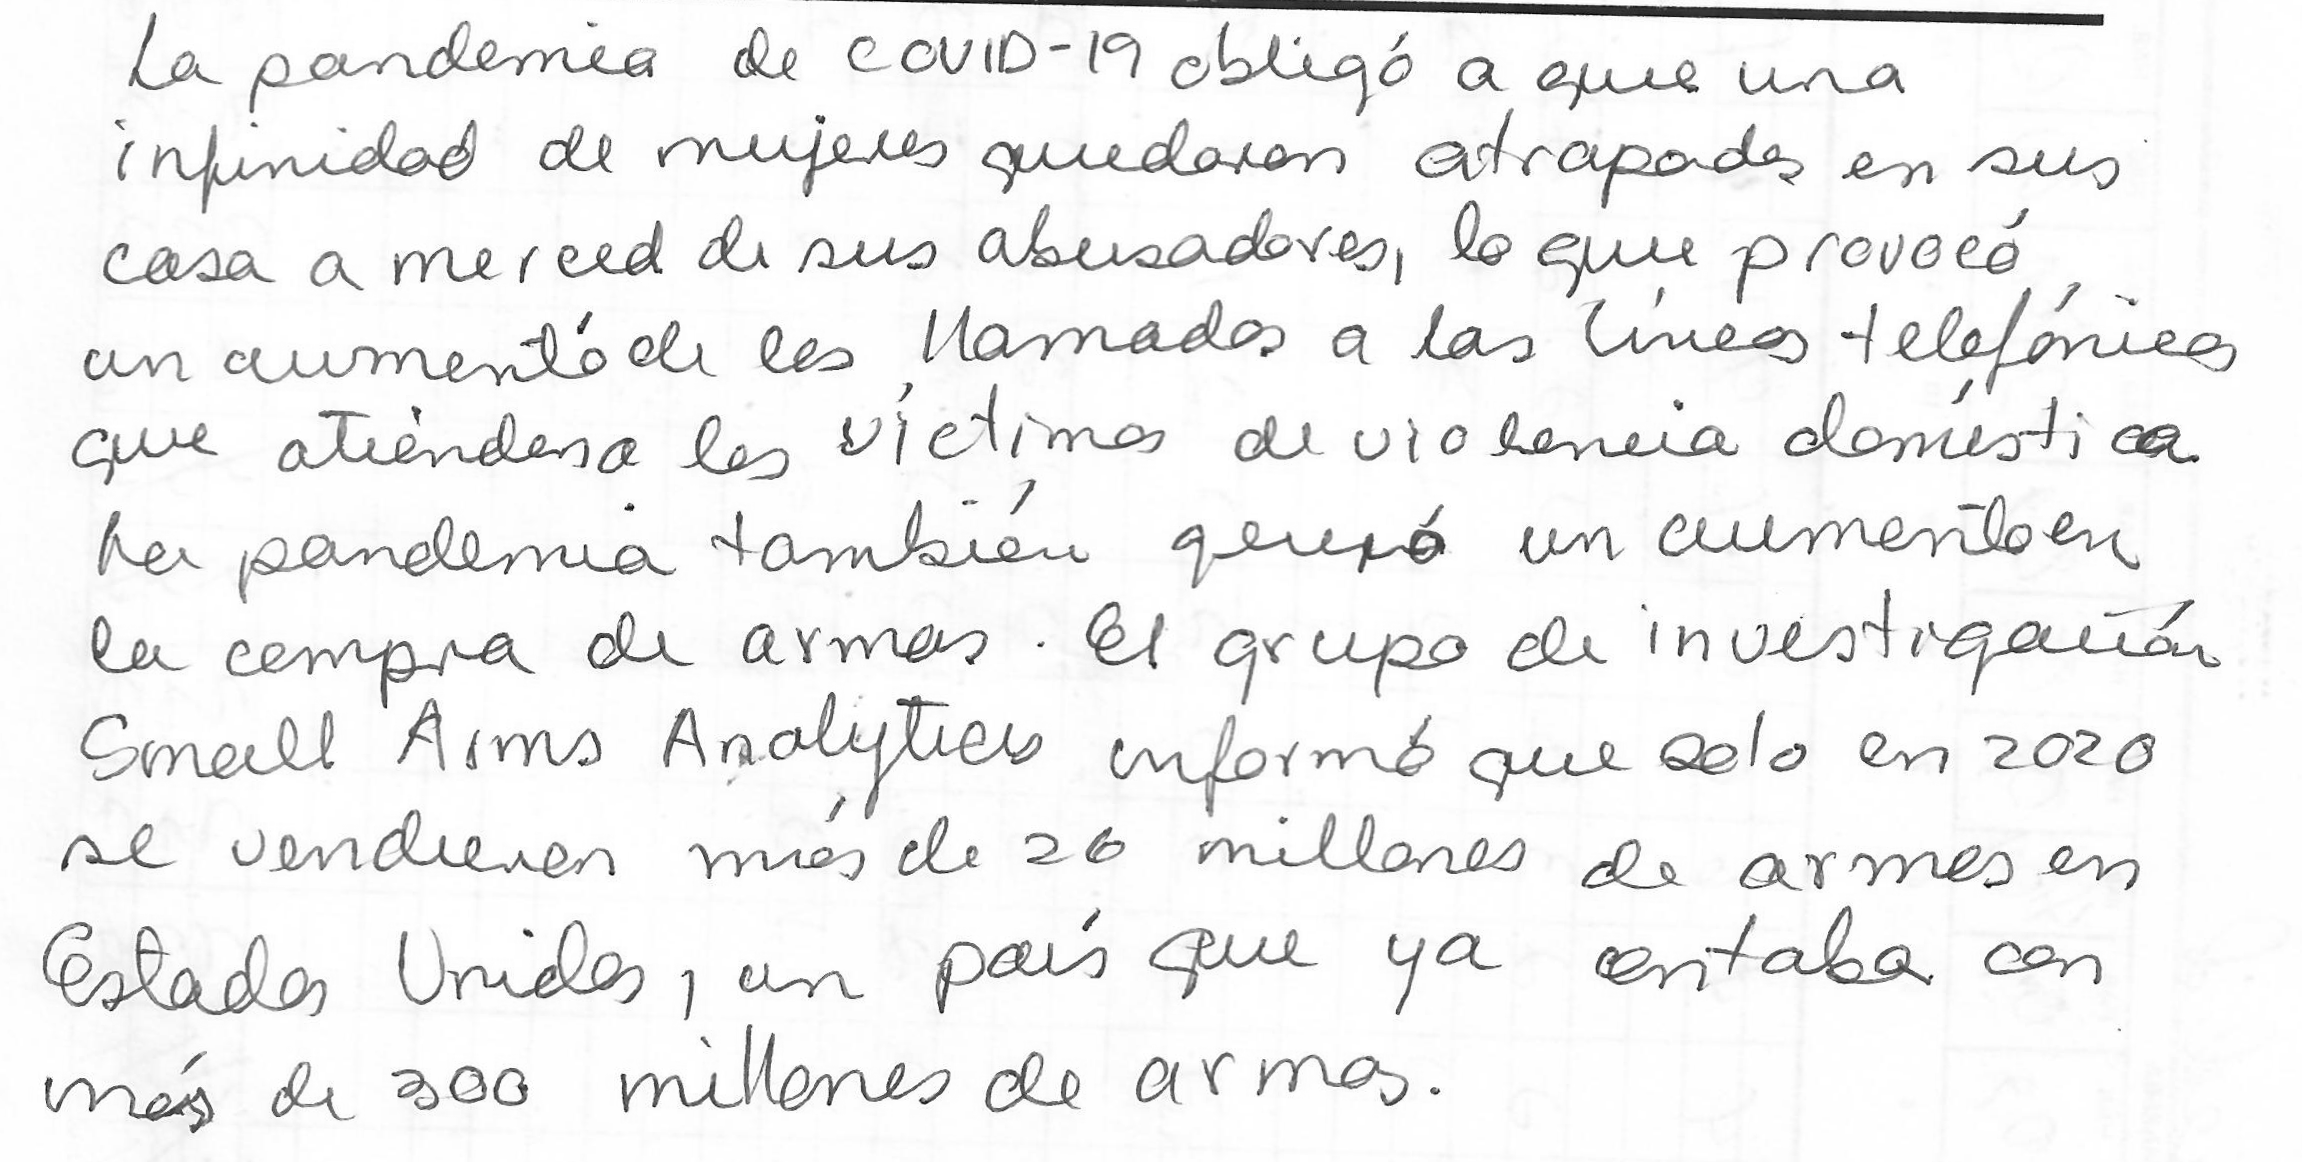 La pandemia de COVID-19 obligó a que una
infinidad de mujeres quedaran atrapadas en sus
casa a merced de sus abusadores, lo que provocó
un aumentó de las llamadas a las líneas telefónicas
que atiénden a las víctimas de violencia doméstica.
La pandemia también generó un aumento en
la compra de armas. El grupo de investigación
Small Arms Analytics informó que solo en 2020
se vendieron más de 20 millones de armas en
Estados Unidos, un país que ya contaba con
más de 300 millones de armas.